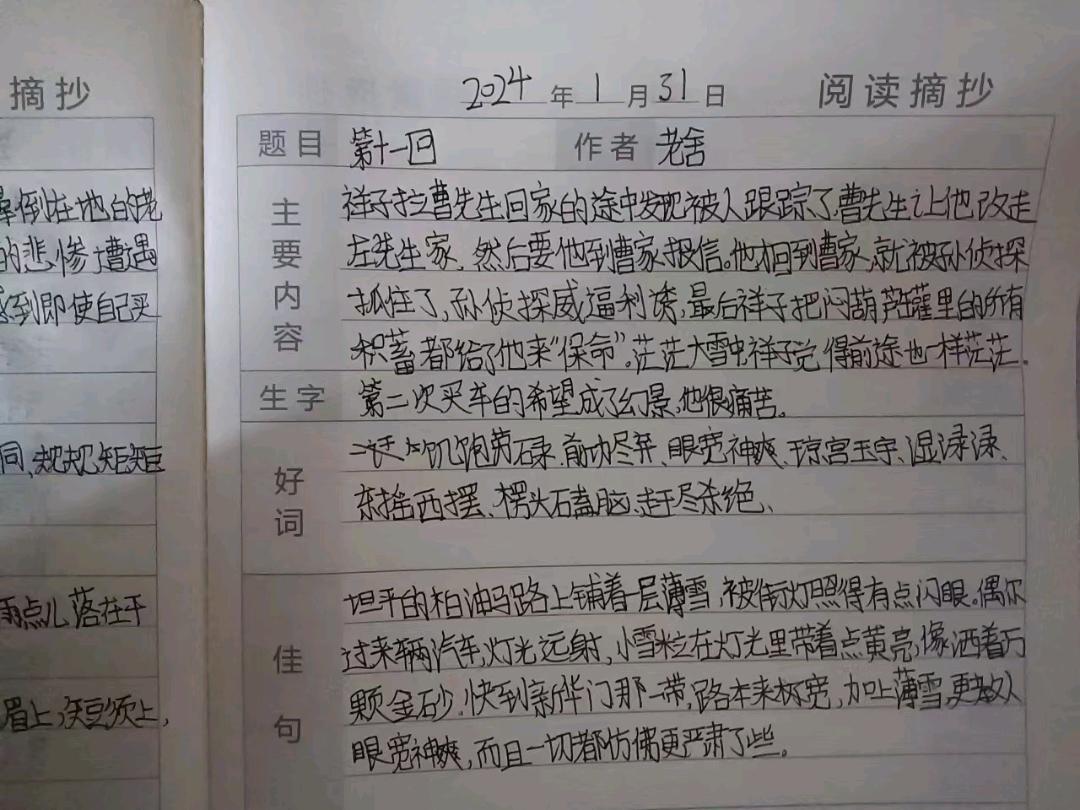 摘抄
倒在地的老
的悲惨遭遇
到即使自己买
同、规规矩矩
雨点儿落在干
眉上,短须上,
2024年1月31日 阅读摘抄
题目 第十一回 作者 老舍
主要内容
祥子拉曹先生回家的途中发现被人跟踪了,曹先生让他改走
左先生家,然后要他到曹家报信。他才回到曹家,就被孙侦探
抓住了,孙侦探威逼利诱,最后祥子把闷葫芦罐里的所有
积蓄都给了他来“保命”。茫茫大雪中祥子觉得前途也一样茫茫。
生字 第二次买车的希望成了幻景,他很痛苦。
好词
饥饱劳碌、前功尽弃、眼宽神爽、琼宫玉宇、湿渌渌、
东摇西摆、楞头磕脑、赶尽杀绝、
佳句
坦平的柏油马路上铺着一层薄雪,被街灯照得有点闪眼。偶尔
过来辆汽车,灯光远射,小雪粒在灯光里带着点黄亮,像洒着万
颗金砂。快到新华门那一带,路本来极宽,加上薄雪,更教人
眼宽神爽,而且一切都仿佛更严肃了些。